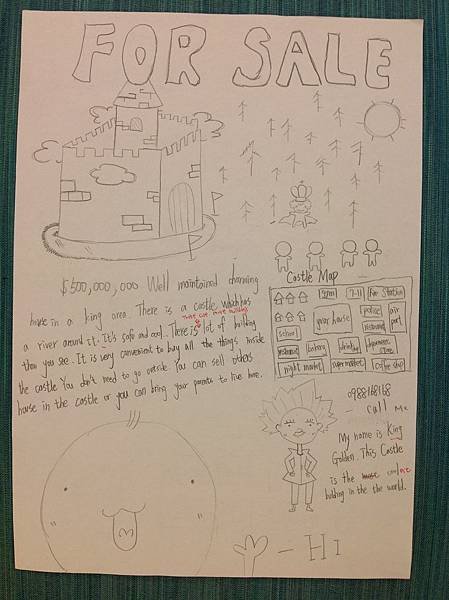 FOR SALE
$500,000,000 Well maintained charming
house in a king area. There is a castle which has
there are more building
a river around it. It's safe and cool. There is lot of building
than you see. It is very convenient to buy all the things inside
the castle You don't need to go outride. You can sell others
house in the castle or you can bring your parents to live here.
Castle Map
gym
7-11
Fire Station
your house
police
air port
restaurant
school
restaurant
library
drink shop
Japanese store
night market
super market
coffee shop
0988168168
- call Me
My name is King
Golden. This Castle
is the coolest
building in the the world.
- HI